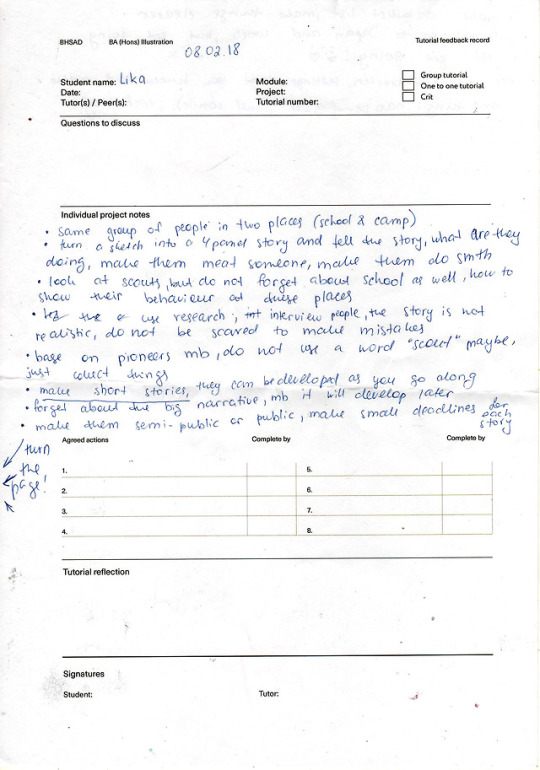 BHSAD BA (Hons) Illustration Tutorial feedback record
08.02.18
Student name: Lika
Date:
Tutor(s) / Peer(s):
Module:
Project:
Tutorial number:
Group tutorial
One to one tutorial
Crit
Questions to discuss
Individual project notes
• same group of people in two places (school & camp)
• turn a sketch into a 4 panel story and tell the story, what are they
doing, make them meat someone, make them do smth
• look at scouts, but do not forget about school as well, how to
show their behaviour at these places
• use research, interview people, the story is not
realistic, do not be scared to make mistakes
• base on pioneers mb, do not use a word "scout" maybe,
just collect things
• make short stories, they can be developed as you go along
• forget about the big narrative, mb it will develop later
• make them semi-public or public, make small deadlines for each story
turn
the
page!
Agreed actions Complete by Complete by
1. 5.
2. 6.
3. 7.
4. 8.
Tutorial reflection
Signatures
Student: Tutor: